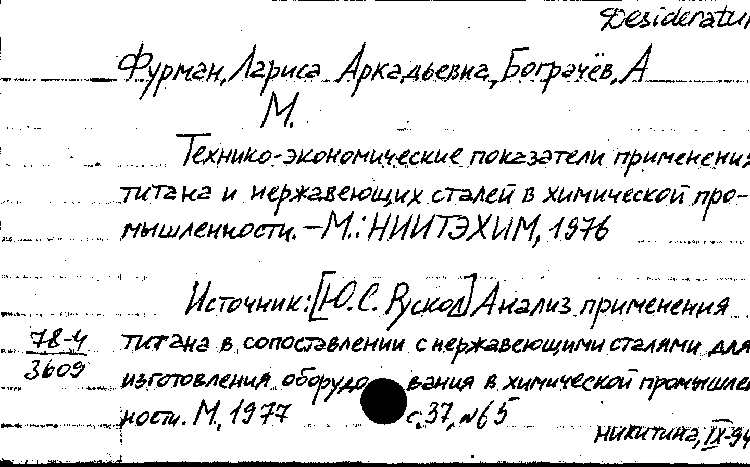 Desideratu
Фурман, Лариса Аркадьевна, Бограчёв, А
М.
Технико-экономические показатели применени
титана и нержавеющих сталей в химической про-
мышленности. – М.: НИИТЭХИМ, 1976
Источник: [Ю.С. Рускол] Анализ применения
титана в сопоставлении с нержавеющими сталями для
изготовления оборудования в химической промышлен
ности. М., 1977 с. 37, №65
78-4
3609
Никитина, IX-94